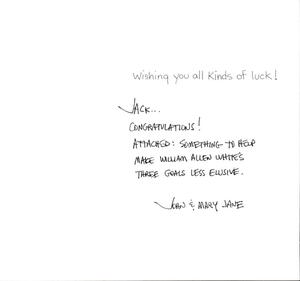 Wishing you all kinds of luck!
JACK...
CONGRATULATIONS!
ATTACHED: SOMETHING TO HELP
MAKE WILLIAM ALLEN WHITE'S
THREE GOALS LESS ELUSIVE.
JOHN & MARY JANE